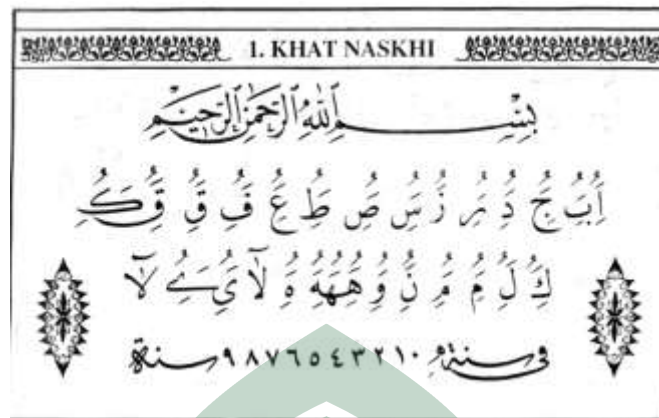 1. KHAT NASKHI
بِسْمِ اللهِ الرَّحْمٰنِ الرَّحِيْمِ
اَُِ بَُِ جَُِ دَُِ رَُِ زَُِ سَُِ صَُِ طَُِ عَُِ فَُِ قَُِ قَُِ كَُِ
كَُِ لَُِ مَُِ مَُِ نَُِ وَُِ هَُِهَُِهَُِ هَُِ لَا يَُِ ےَُِ لَا
في سنة ٠ ١ ٢ ٣ ٤ ٥ ٦ ٧ ٨ ٩ سنة